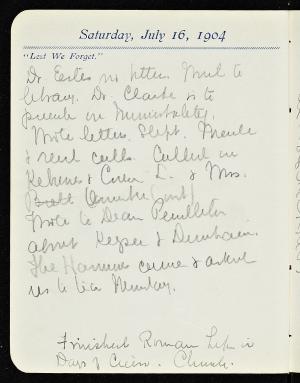 Saturday, July 16, 1904
"Lest We Forget."
Dr. Estes no letters. Went to
library. Dr. Clarke is to
preach on Immortality.
Wrote letters. Slept.
& recd calls. Called on
& Mrs.
Wrote to Dean Pendleton
about Keyser & Dunham.
The came & asked
us to tea Monday.
Finished Roman Life in
Days of Cicero. Church.